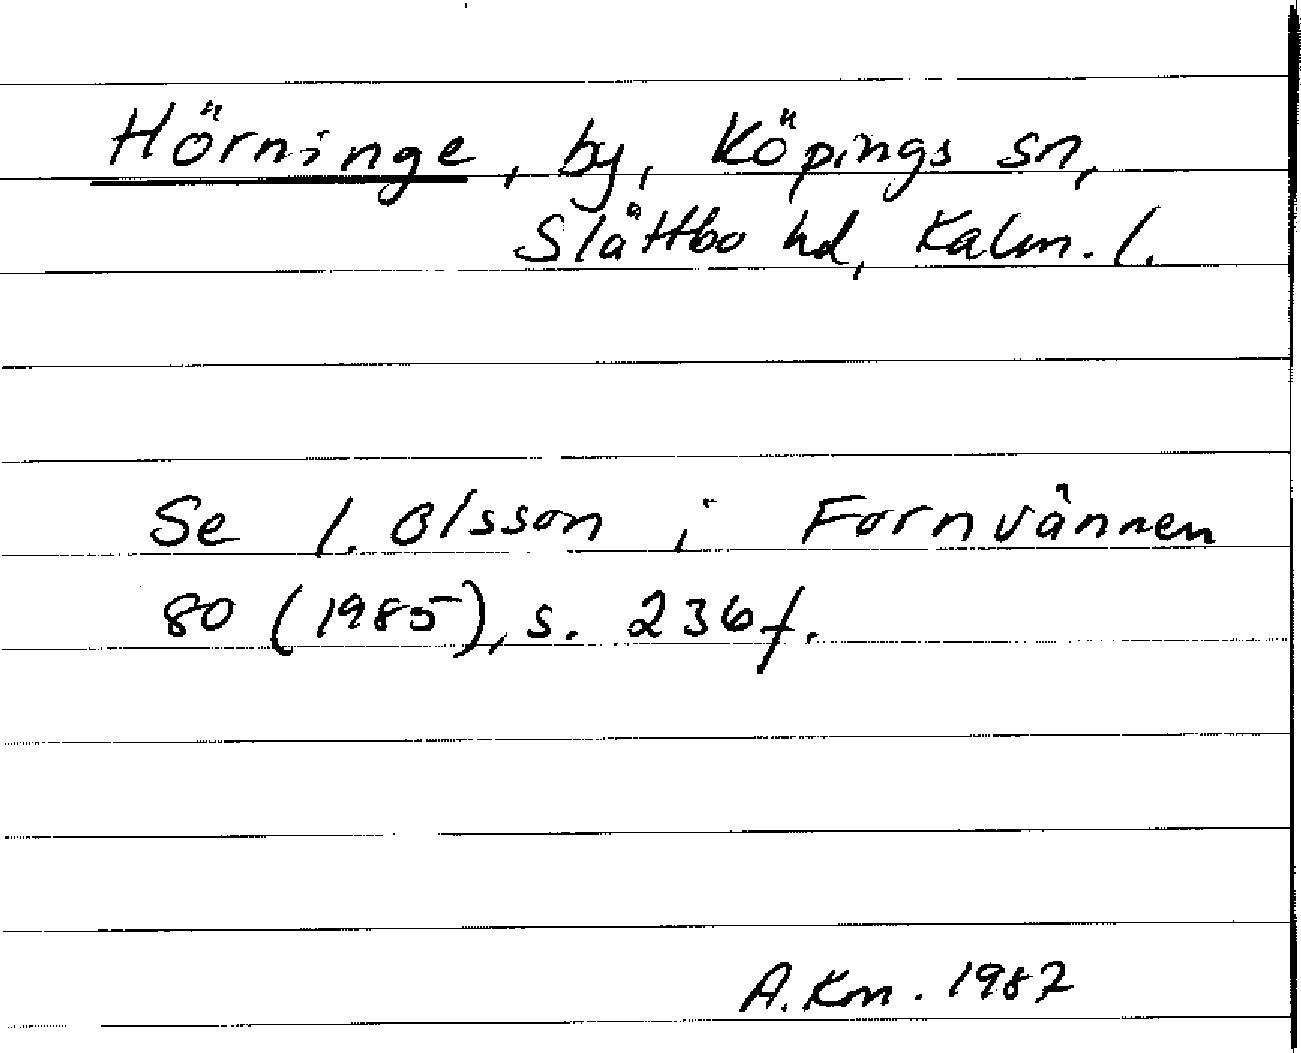 Hörninge, by, Köpings sn,
Slättbo hd, Kalm. l.
Se I. Olsson i Fornvännen
80 (1985), s. 236f.
A. Km. 1987